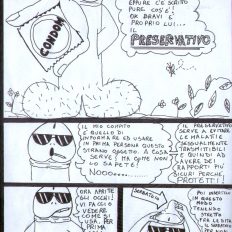 EPPURE C'È SCRITTO
PURE COS'È!
OK BRAVI È
PROPRIO LUI...
IL
PRESERVATIVO
CONDOM
IL MIO COMPITO
È QUELLO DI
INFORMARE ED USARE
IN PRIMA PERSONA QUESTO
STRANO OGGETTO. A COSA
SERVE? MA COME NON
LO SAPETE!
NOOO.....
IL PRESERVATIVO
SERVE A EVITARE
LE MALATTIE
SESSUALMENTE
TRASMITTIBILI
E QUINDI AD
AVERE DEI
RAPPORTI PIÙ
SICURI PERCHÈ
PROTETTI!
ORA APRITE
GLI OCCHI!
VI FACCIO
VEDERE
COME SI
USA. PER
PRIMA
SERBATOIO
POI INSERITELO
IN QUESTO
MODO
TENENDO
STRETTO
TRA LE DITA
IL SER-